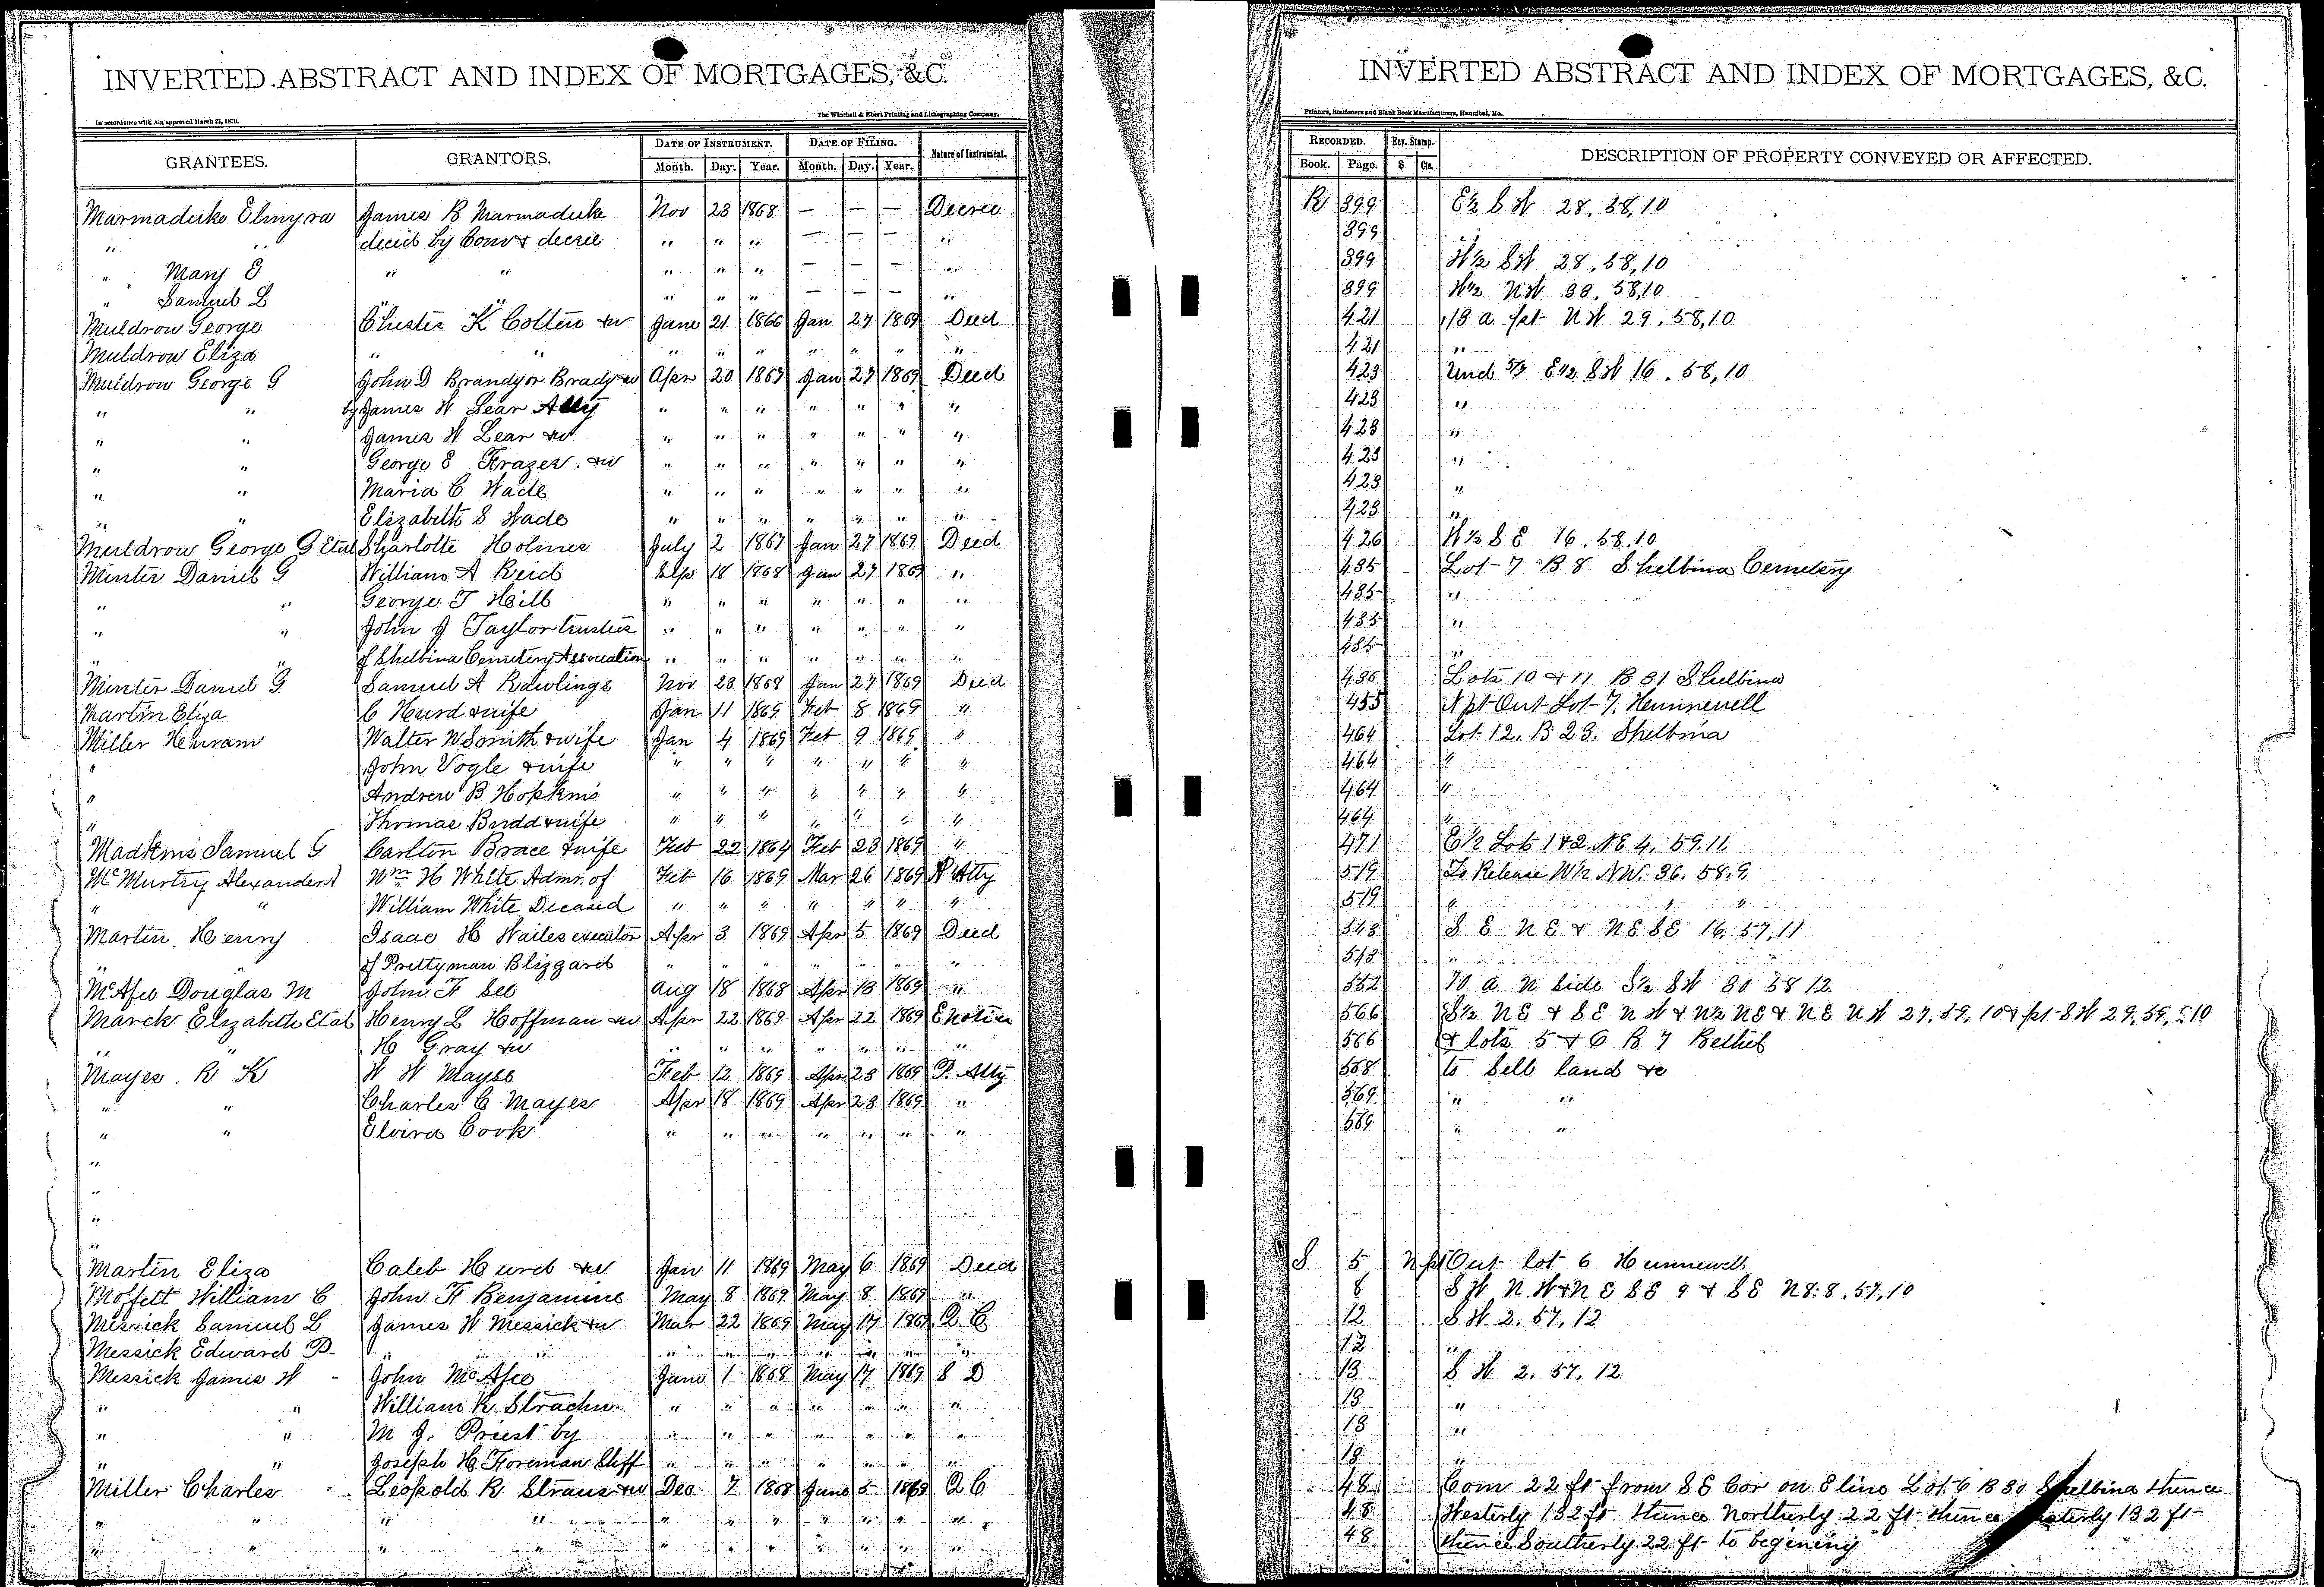 INVERTED ABSTRACT AND INDEX OF MORTGAGES, &C.
In accordance with Act approved March 21, 1870.
The Winchell & Ebert Printing and Lithographing Company,
GRANTEES. GRANTORS. DATE OF INSTRUMENT. DATE OF FILING. Nature of Instrument.
Month. Day. Year. Month. Day. Year.
Marmaduke Elmyra James R Marmaduke Nov 23 1868 — — — Decree
" " decd by Court decree " " " — — — "
" Mary E " " " " " — — — "
" Samuel L " " " " " — — — "
Muldrow George Chester K Cotten &w June 21 1866 Jan 27 1869 Deed
Muldrow Eliza " " " " " " " " "
Muldrow George G John D Brandy or Brady &w Apr 20 1867 Jan 27 1869 Deed
" " by James W Lear Atty " " " " " " "
" " James W Lear &w " " " " " " "
" " George E Frazer &w " " " " " " "
" " Maria C Wade " " " " " " "
" " Elizabeth S Wade " " " " " " "
Muldrow George G Etal Sharlotte Holmes July 2 1867 Jan 27 1869 Deed
Minter Daniel G William A Reid Sep 18 1868 Jan 27 1869 "
" " George T Hill " " " " " " "
" " John J Taylor trustees " " " " " " "
" " of Shelbina Cemetery Association " " " " " " "
Minter Daniel G Samuel A Rawlings Nov 23 1868 Jan 27 1869 Deed
Martin Eliza C Hurd & wife Jan 11 1869 Feb 8 1869 "
Miller Henram Walter W Smith & wife Jan 4 1869 Feb 9 1869 "
" John Vogle & wife " " " " " " "
" Andrew B Hopkins " " " " " " "
" Thomas Budd & wife " " " " " " "
Madkins Samuel G Carlton Brace & wife Feb 22 1869 Feb 23 1869 "
McMurtry Alexander Wm H White Admr. of Feb 16 1869 Mar 26 1869 P Atty
" " William White Deceased " " " " " " "
Martin Henry Isaac H Hailes executor Apr 3 1869 Apr 5 1869 Deed
" of Prettyman Blizzard " " " " " " "
McAfee Douglas M John F See Aug 18 1868 Apr 13 1869 "
Marck Elizabeth Etal Henry L Hoffman &w Apr 22 1869 Apr 22 1869 E Notice
" " H Gray &w " " " " " " "
Mayes R K W W Mayse Feb 12 1869 Apr 23 1869 P. Atty
" " Charles C Mayes Apr 18 1869 Apr 23 1869 "
" " Elvira Cook " " " " " " "
"
"
"
"
Martin Eliza Caleb Hurd &w Jan 11 1869 May 6 1869 Deed
Moffett William C John F Benjamine May 8 1869 May 8 1869 "
Messick Samuel L James W Messick &w Mar 22 1869 May 17 1869 Q. C
Messick Edward P. " " " " " " " " "
Messick James W John McAfee June 1 1868 May 17 1869 S D
" " William R. Strachn " " " " " " "
" " M J. Priest by " " " " " " "
" " Joseph H Foreman Shff " " " " " " "
Miller Charles Leopold R Straus &w Dec 7 1868 June 5 1869 Q C
" " " " " " " " " " "
" " " " " " " " " " "
INVERTED ABSTRACT AND INDEX OF MORTGAGES, &C.
Printers, Stationers and Blank Book Manufacturers, Hannibal, Mo.
RECORDED. Rev. Stamp. DESCRIPTION OF PROPERTY CONVEYED OR AFFECTED.
Book. Page. $ Cts.
R 399 E½ SW 28, 58, 10
399 "
399 W½ SW 28, 58, 10
399 W½ NW 33, 58, 10
421 1/8 a pt NW 29, 58, 10
421 "
423 Und E½ SW 16, 58, 10
423 "
423 "
423 "
423 "
423 "
426 W½ SE 16, 58, 10
435 Lot 7 B 8 Shelbina Cemetery
435 "
435 "
435 "
436 Lots 10 & 11 B 31 Shelbina
455 N pt Out Lot 7, Hunnewell
464 Lot 12, B 23, Shelbina
464 "
464 "
464 "
471 E½ Lots 1 & 2 NE 4, 59, 11
519 To Release W½ NW. 36. 58. 9
519 " " "
543 S E N E & NE SE 16, 57, 11
543 "
552 70 a N Side S½ SW 30 58 12
566 S½ NE & SE NW & N½ NE & NE NW 29, 59, 10 & pt SW 29, 59, 10
566 & lots 5 & 6 B 7 Bethel
558 to sell land &c
569 " "
569 " "
S 5 N pt Out lot 6 Hunnewell
8 S W N. W & N E SE 9 & SE N E 8, 57, 10
12 S. W. 2, 57, 12
12 "
13 S. W 2, 57, 12
13 "
13 "
13 "
48 Com 22 ft from SE Cor on E line Lot 6 B 30 Shelbina thence
48 Westerly 132 ft thence Northerly 22 ft thence Easterly 132 ft
48 thence Southerly 22 ft to begining